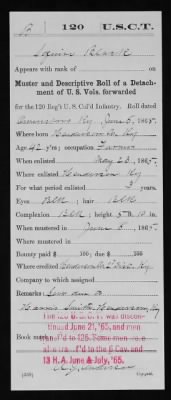 B | 120 | U.S.C.T.
Squire Black
Appears with rank of
Muster and Descriptive Roll of a Detach-
ment of U. S. Vols. forwarded
for the 120 Reg't U. S. Col'd Infantry. Roll dated
Ky. June 5, 1865.
Where born Henderson Co. Ky
Age 42 y'rs; occupation Farmer
When enlisted May 23, 1865.
Where enlisted Henderson Ky
For what period enlisted 3 years.
Eyes Blk; hair Blk
Complexion Blk; height 5 ft. 10 in.
When mustered in June 5, 1865.
Where mustered in
Bounty paid $ 100; due $ 100
Where credited Ky.
Company to which assigned
Remarks:
Smith Henderson, Ky
The 120 U.S.C.T. was discon-
tinued June 21, '65, and men
transf'd to 125. Some men were
also transf'd to the 6 Cav. and
13 H.A. June & July, '65.
Book mark:
(339)
Copyist.